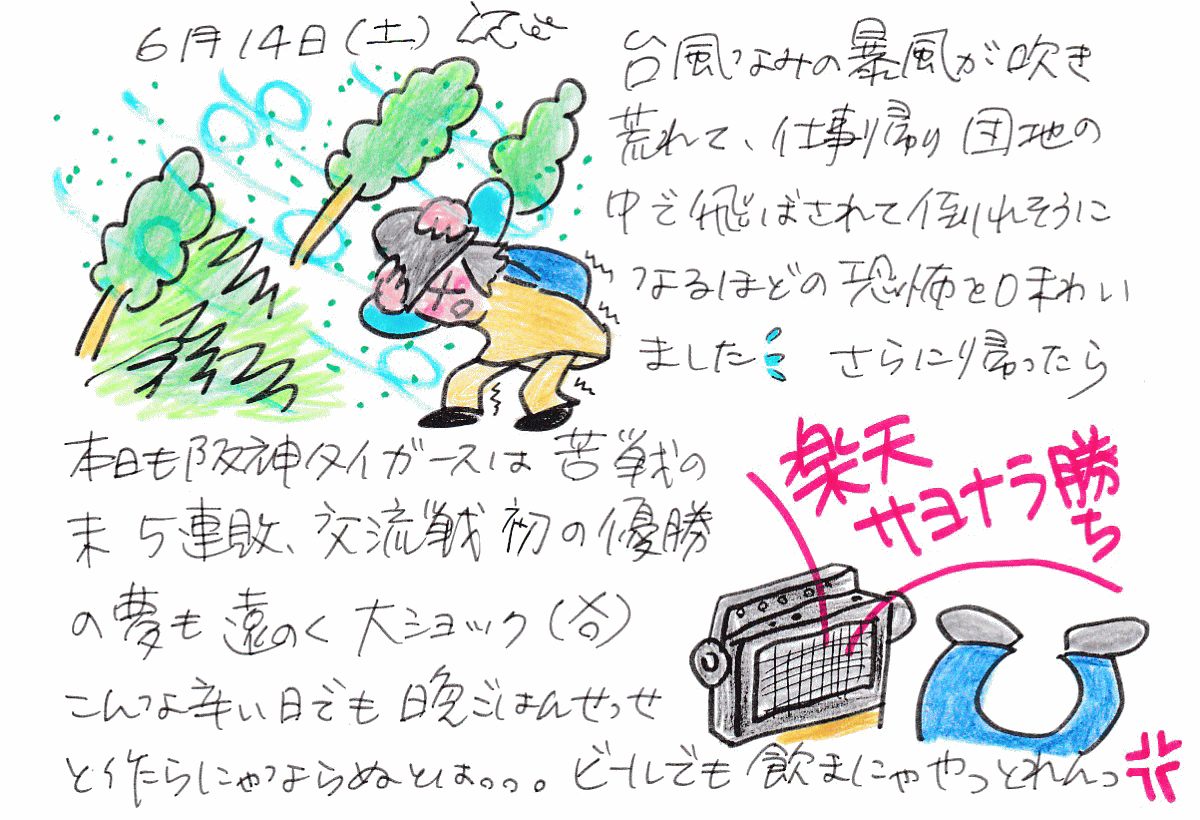 6月14日(土)
台風なみの暴風が吹き
荒れて、仕事帰り団地の
中で飛ばされて倒れそうに
なるほどの恐怖を味わい
ました さらに帰ったら
本日も阪神タイガースは苦戦の
末5連敗、交流戦初の優勝
の夢も遠のく大ショック
こんな辛い日でも晩ごはんせっせ
と作らにゃならぬとはっっ。ビールでも飲まにゃやっとれんっ
楽天
サヨナラ勝ち